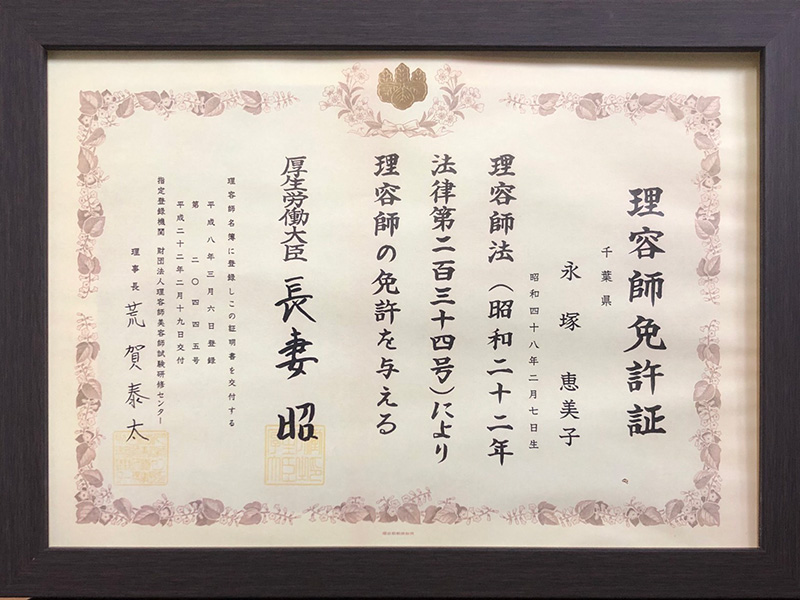 理容師免許証
千葉県
永塚 恵美子
昭和四十八年二月七日生
理容師法（昭和二十二年
法律第二百三十四号）により
理容師の免許を与える
厚生労働大臣 長妻 昭
理容師名簿に登録しこの証明書を交付する
平成八年三月六日登録
第二〇四四五号
平成二十二年二月十九日交付
指定登録機関 財団法人理容師美容師試験研修センター
理事長 荒賀泰太